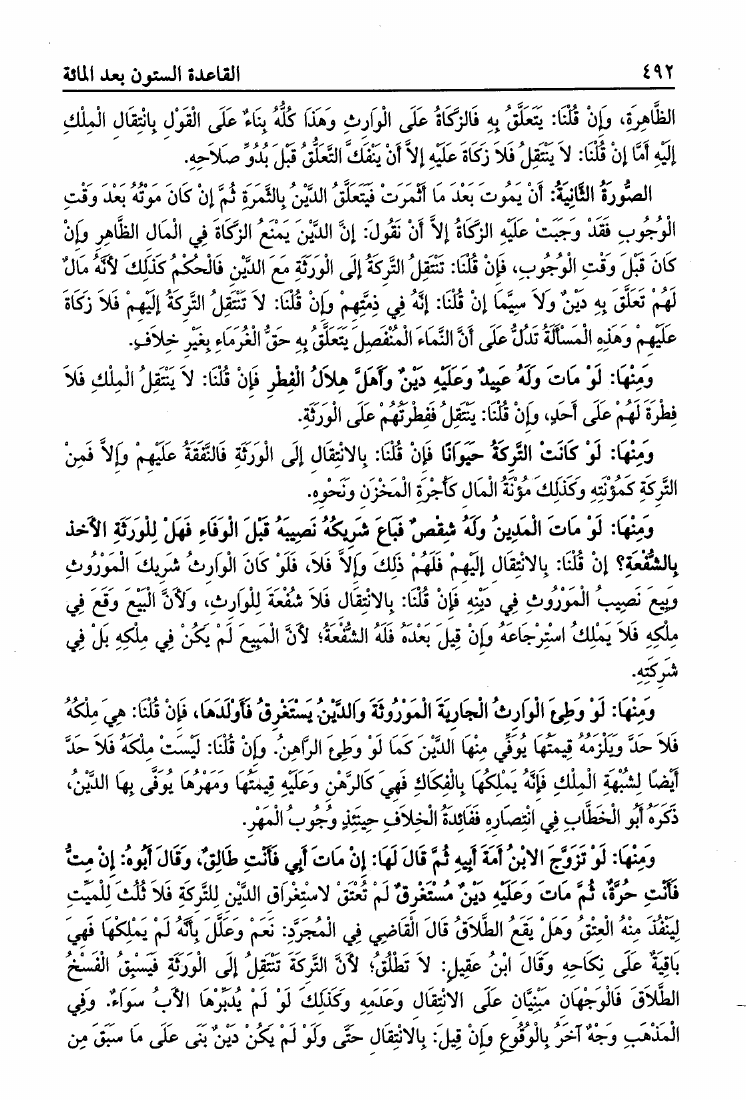 ٤٩٢
القاعدة الستون بعد المائة
الظَّاهِرَةِ، وَإِنْ قُلْنَا: يَتَعَلَّقُ بِهِ فَالزَّكَاةُ عَلَى الْوَارِثِ وَهَذَا كُلُّهُ بِنَاءً عَلَى الْقَوْلِ بِانْتِقَالِ الْمِلْكِ
إِلَيْهِ أَمَّا إِنْ قُلْنَا: لَا يَنْتَقِلُ فَلَا زَكَاةَ عَلَيْهِ إِلاَّ أَنْ يَنْفَكَّ التَّعَلُّقُ قَبْلَ بُدُوِّ صَلَاحِهِ.
الصُّورَةُ الثَّانِيَةُ: أَنْ يَمُوتَ بَعْدَ مَا أَثْمَرَتْ فَيَتَعَلَّقُ الدَّيْنُ بِالثَّمَرَةِ ثُمَّ إِنْ كَانَ مَوْتُهُ بَعْدَ وَقْتِ
الْوُجُوبِ فَقَدْ وَجَبَتْ عَلَيْهِ الزَّكَاةُ إِلاَّ أَنْ نَقُولَ: إِنَّ الدَّيْنَ يَمْنَعُ الزَّكَاةَ فِي الْمَالِ الظَّاهِرِ وَإِنْ
كَانَ قَبْلَ وَقْتِ الْوُجُوبِ، فَإِنْ قُلْنَا: تَنْتَقِلُ التَّرِكَةُ إِلَى الْوَرَثَةِ مَعَ الدَّيْنِ فَالْحُكْمُ كَذَلِكَ لأَنَّهُ مَالٌ
لَهُمْ تَعَلَّقَ بِهِ دَيْنٌ وَلَا سِيَّمَا إِنْ قُلْنَا: إِنَّهُ فِي ذِمَّتِهِمْ وَإِنْ قُلْنَا: لَا تَنْتَقِلُ التَّرِكَةُ إِلَيْهِمْ فَلَا زَكَاةَ
عَلَيْهِمْ وَهَذِهِ الْمَسْأَلَةُ تَدُلُّ عَلَى أَنَّ النَّمَاءَ الْمُنْفَصِلَ يَتَعَلَّقُ بِهِ حَقُّ الْغُرَمَاءِ بِغَيْرِ خِلَافٍ.
وَمِنْهَا: لَوْ مَاتَ وَلَهُ عَبِيدٌ وَعَلَيْهِ دَيْنٌ وَأَهَلَّ هِلَالُ الْفِطْرِ فَإِنْ قُلْنَا: لَا يَنْتَقِلُ الْمِلْكِ فَلَا
فِطْرَةَ لَهُمْ عَلَى أَحَدٍ، وَإِنْ قُلْنَا: يَنْتَقِلُ فَفِطْرَتُهُمْ عَلَى الْوَرَثَةِ.
وَمِنْهَا: لَوْ كَانَتْ التَّرِكَةُ حَيَوَانًا فَإِنْ قُلْنَا: بِالِانْتِقَالِ إِلَى الْوَرَثَةِ فَالنَّفَقَةُ عَلَيْهِمْ وَإِلاَّ فَمِنْ
التَّرِكَةِ كَمُؤْنَتِهِ وَكَذَلِكَ مُؤْنَةُ الْمَالِ كَأُجْرَةِ الْمَخْزَنِ وَنَحْوِهِ.
وَمِنْهَا: لَوْ مَاتَ الْمَدِينُ وَلَهُ شِقْصٌ فَبَاعَ شَرِيكُهُ نَصِيبَهُ قَبْلَ الْوَفَاءِ فَهَلْ لِلْوَرَثَةِ الأَخذ
بِالشُّفْعَةِ؟ إِنْ قُلْنَا: بِالِانْتِقَالِ إِلَيْهِمْ فَلَهُمْ ذَلِكَ وَإِلاَّ فَلَا، فَلَوْ كَانَ الْوَارِثُ شَرِيكَ الْمَوْرُوثِ
وَبِيعَ نَصِيبُ الْمَوْرُوثِ فِي دَيْنِهِ فَإِنْ قُلْنَا: بِالِانْتِقَالِ فَلَا شُفْعَةَ لِلْوَارِثِ، وَلأَنَّ الْبَيْعَ وَقَعَ فِي
مِلْكِهِ فَلَا يَمْلِكُ اسْتِرْجَاعَهُ وَإِنْ قِيلَ بَعْدَهُ فَلَهُ الشُّفْعَةُ؛ لأَنَّ الْمَبِيعَ لَمْ يَكُنْ فِي مِلْكِهِ بَلْ فِي
شَرِكَتِهِ.
وَمِنْهَا: لَوْ وَطِئَ الْوَارِثُ الْجَارِيَةَ الْمَوْرُوثَةَ وَالدَّيْنُ يَسْتَغْرِقُ فَأَوْلَدَهَا، فَإِنْ قُلْنَا: هِيَ مِلْكُهُ
فَلَا حَدَّ وَيَلْزَمُهُ قِيمَتُهَا يُوَفَّى مِنْهَا الدَّيْنَ كَمَا لَوْ وَطِئَ الرَّاهِنُ. وَإِنْ قُلْنَا: لَيْسَتْ مِلْكَهُ فَلَا حَدَّ
أَيْضًا لِشُبْهَةِ الْمِلْكِ فَإِنَّهُ يَمْلِكُهَا بِالْفِكَاكِ فَهِيَ كَالرَّهْنِ وَعَلَيْهِ قِيمَتُهَا وَمَهْرُهَا يُوَفَّى بِهَا الدَّيْنُ،
ذَكَرَهُ أَبُو الْخَطَّابِ فِي انْتِصَارِهِ فَفَائِدَةُ الْخِلَافِ حِينَئِذٍ وُجُوبُ الْمَهْرِ.
وَمِنْهَا: لَوْ تَزَوَّجَ الابْنُ أَمَةَ أَبِيهِ ثُمَّ قَالَ لَهَا: إِنْ مَاتَ أَبِي فَأَنْتِ طَالِقٌ، وَقَالَ أَبُوهُ: إِنْ مِتُّ
فَأَنْتِ حُرَّةٌ، ثُمَّ مَاتَ وَعَلَيْهِ دَيْنٌ مُسْتَغْرِقٌ لَمْ تُعْتَقْ لاسْتِغْرَاقِ الدَّيْنِ لِلتَّرِكَةِ فَلَا ثُلُثَ لِلْمَيِّتِ
لِيَنْفُذَ مِنْهُ الْعِتْقُ وَهَلْ يَقَعُ الطَّلَاقُ قَالَ الْقَاضِي فِي الْمُجَرَّدِ: نَعَمْ وَعَلَّلَ بِأَنَّهُ لَمْ يَمْلِكْهَا فَهِيَ
بَاقِيَةٌ عَلَى نِكَاحِهِ وَقَالَ ابْنُ عَقِيلٍ: لَا تَطْلُقُ؛ لأَنَّ التَّرِكَةَ تَنْتَقِلُ إِلَى الْوَرَثَةِ فَيَسْبِقُ الْفَسْخُ
الطَّلَاقَ فَالْوَجْهَانِ مَبْنِيَّانِ عَلَى الِانْتِقَالِ وَعَدَمِهِ وَكَذَلِكَ لَوْ لَمْ يُدَبِّرْهَا الأَبُ سَوَاءٌ. وَفِي
الْمَذْهَبِ وَجْهٌ آخَرُ بِالْوُقُوعِ وَإِنْ قِيلَ: بِالِانْتِقَالِ حَتَّى وَلَوْ لَمْ يَكُنْ دَيْنٌ بَنَى عَلَى مَا سَبَقَ مِن